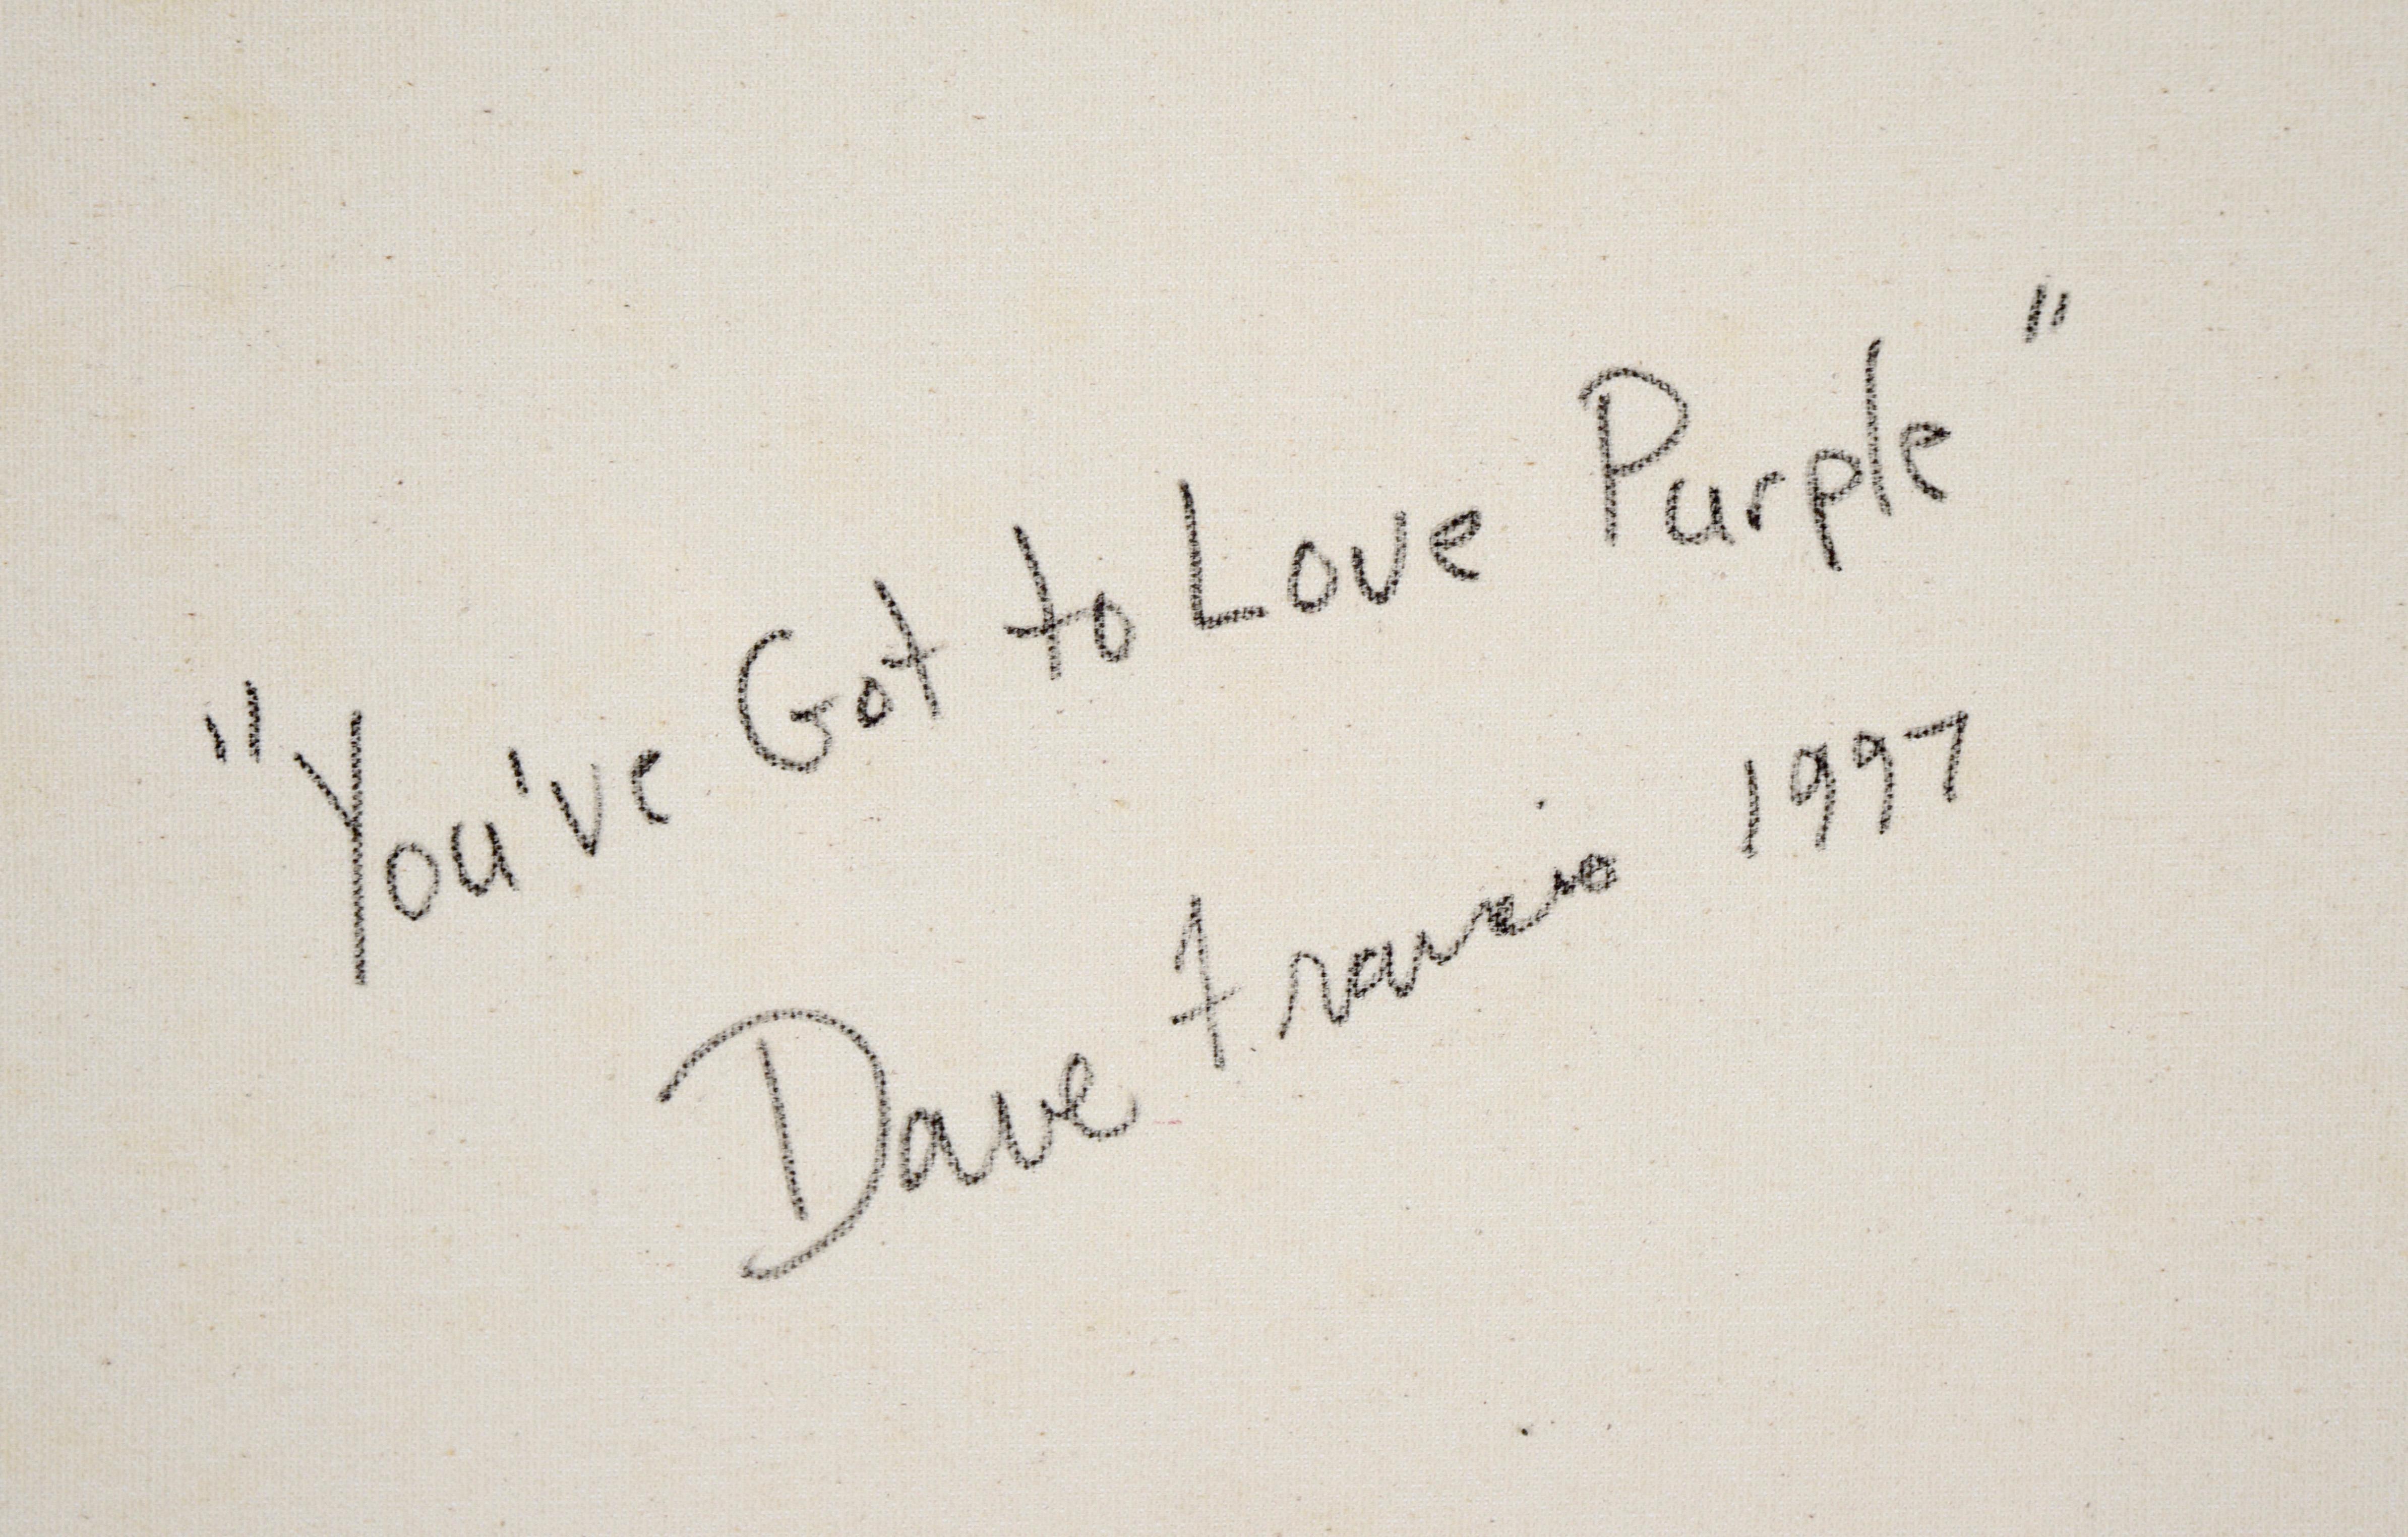 "You've Got to Love Purple"
Dave 1997